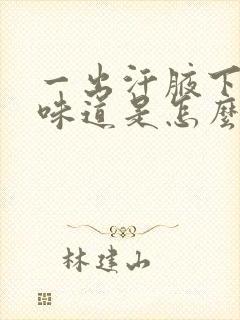 一出汗腋下
味道是怎麼
林建山